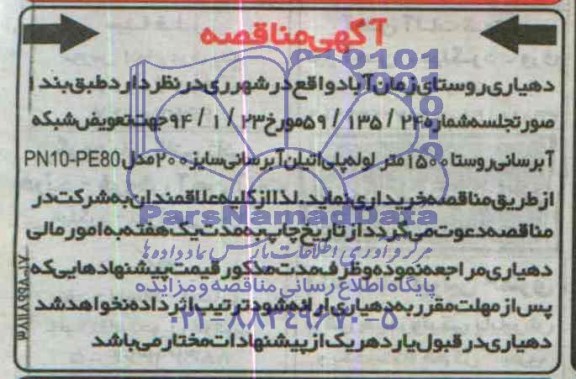 آگهی مناقصه
دهیاری روستای زمان آباد واقع در شهرری در نظر دارد طبق بند ۱
صورتجلسه شماره ۲۴ / ۱۳۵ / ۵۹ مورخ ۲۳ / ۱ / ۹۴ جهت تعویض شبکه
آبرسانی روستا ۱۵۰۰ متر لوله پلی اتیلن آبرسانی سایز ۲۰۰ مدل PN10-PE80
از طریق مناقصه خریداری نماید. لذا از کلیه علاقمندان به شرکت در
مناقصه دعوت می گردد از تاریخ چاپ به مدت یک هفته به امور مالی
دهیاری مراجعه نموده و ظرف مدت مذکور قیمت پیشنهادهایی که
پس از مهلت مقرر به دهیاری ارائه شود ترتیب اثر داده نخواهد شد
دهیاری در قبول یا رد هر یک از پیشنهادات مختار می باشد
ParsNamadData
مرکز فرآوری اطلاعات پارس نماد داده ها
پایگاه اطلاع رسانی مناقصه و مزایده
۰۲۱-۸۸۳۴۹۶۷۰-۵